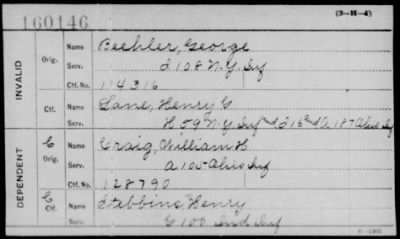 160146
(3-H-4)
INVALID
Orig. Name Beehler, George
Serv. I 108 N.Y. Inf
Ctf. No. 114316
Ctf. Name Lane, Henry G
Serv. H 59 N.Y. Inf and I 16 and A 187 Ohio Inf
DEPENDENT
C
Orig. Name Craig, William H
Serv. A 100 Ohio Inf
Ctf. No. 128790
C
Ctf. Name Stebbins, Henry
Serv. G 100 Ind Inf